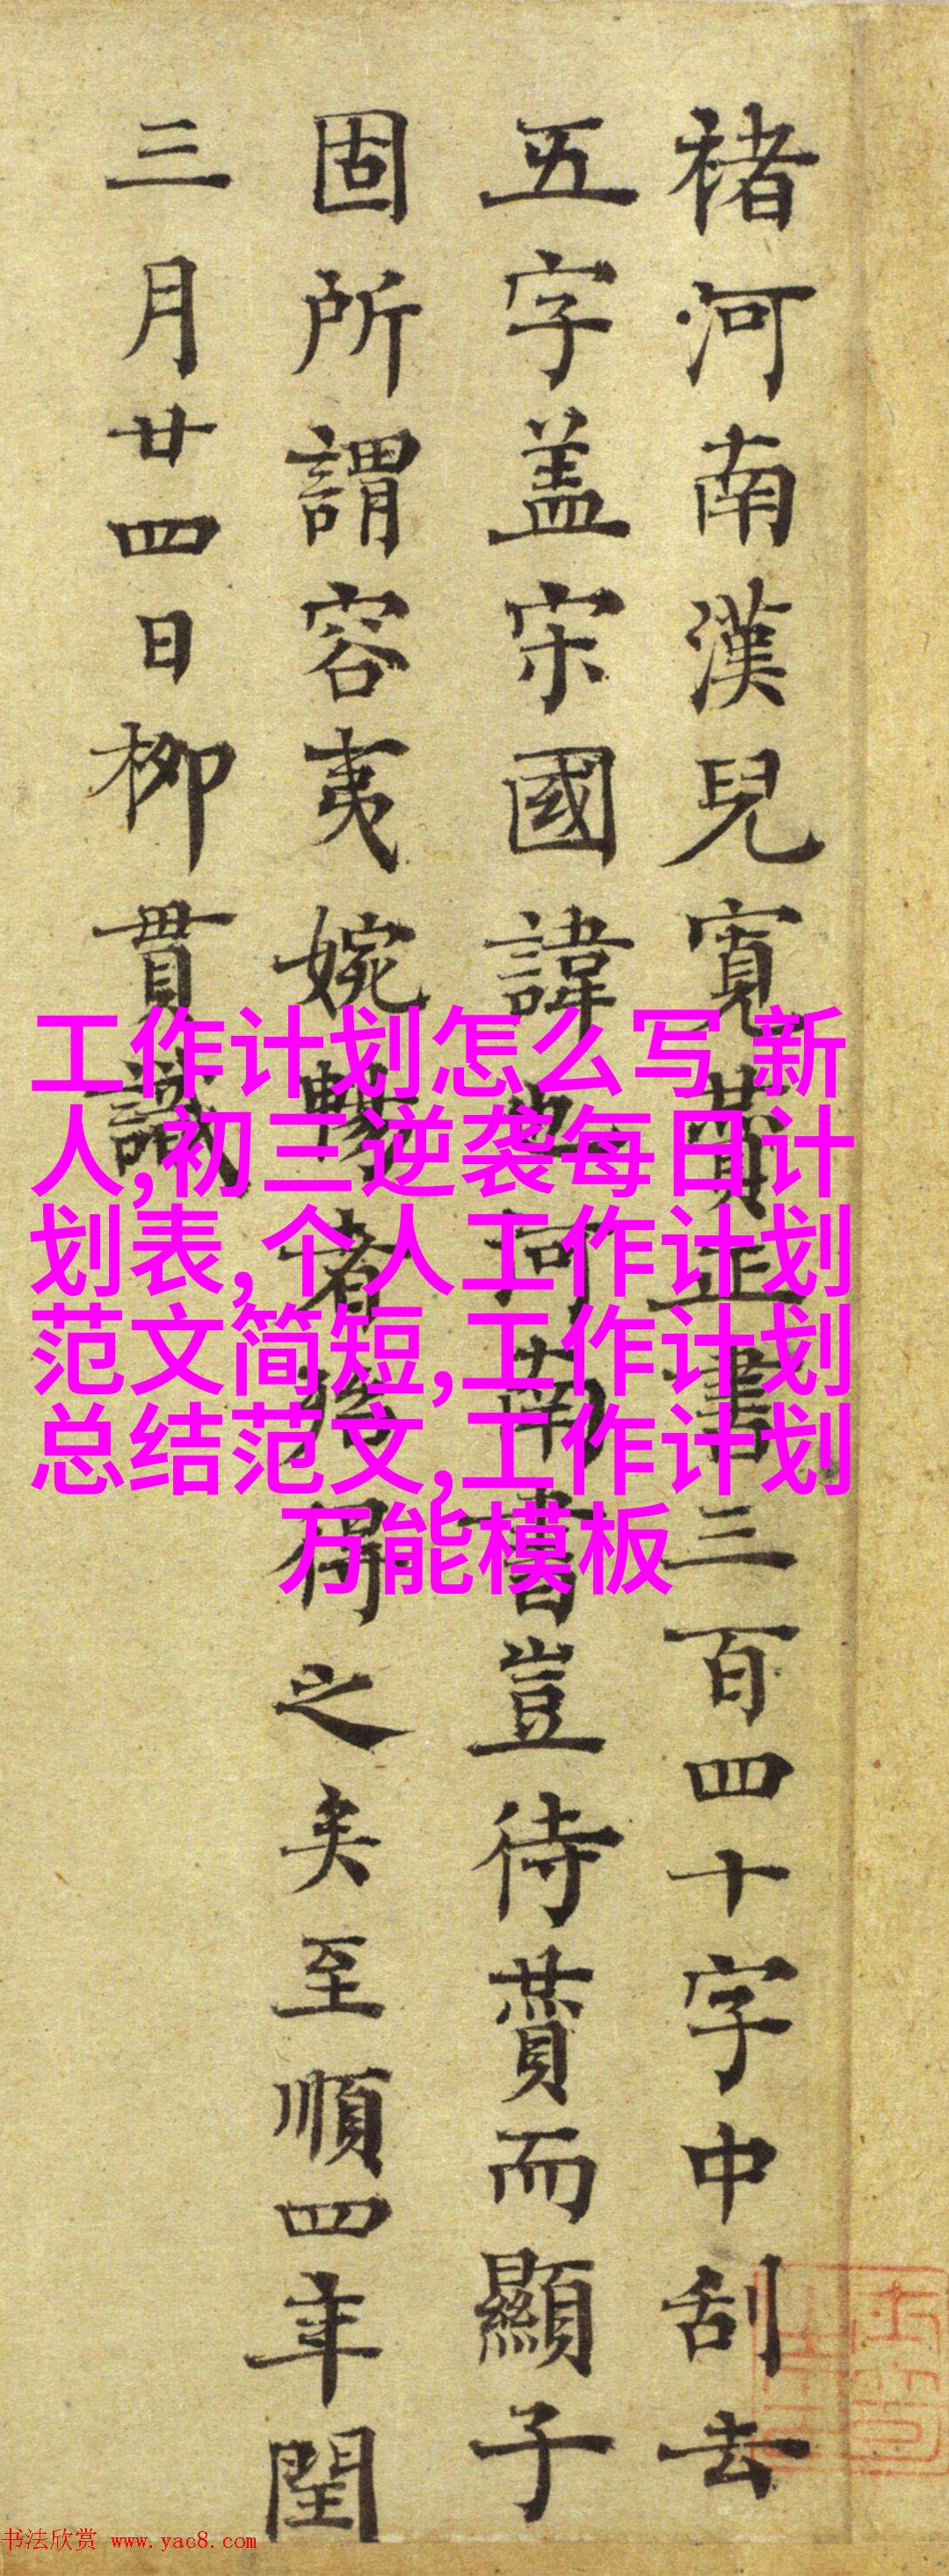 褚河南漢兒寬賛正書三百四十字中刮去
五字盖宋國諱也河南書豈待賛而顯子
固所謂容夷婉暢者得之矣至順四年閏
三月廿四日柳貫識
工作计划怎么写 新
人,初三逆袭每日计
划表,个人工作计划
范文简短,工作计划
总结范文,工作计划
万能模板
书法欣赏 www.yac8.com